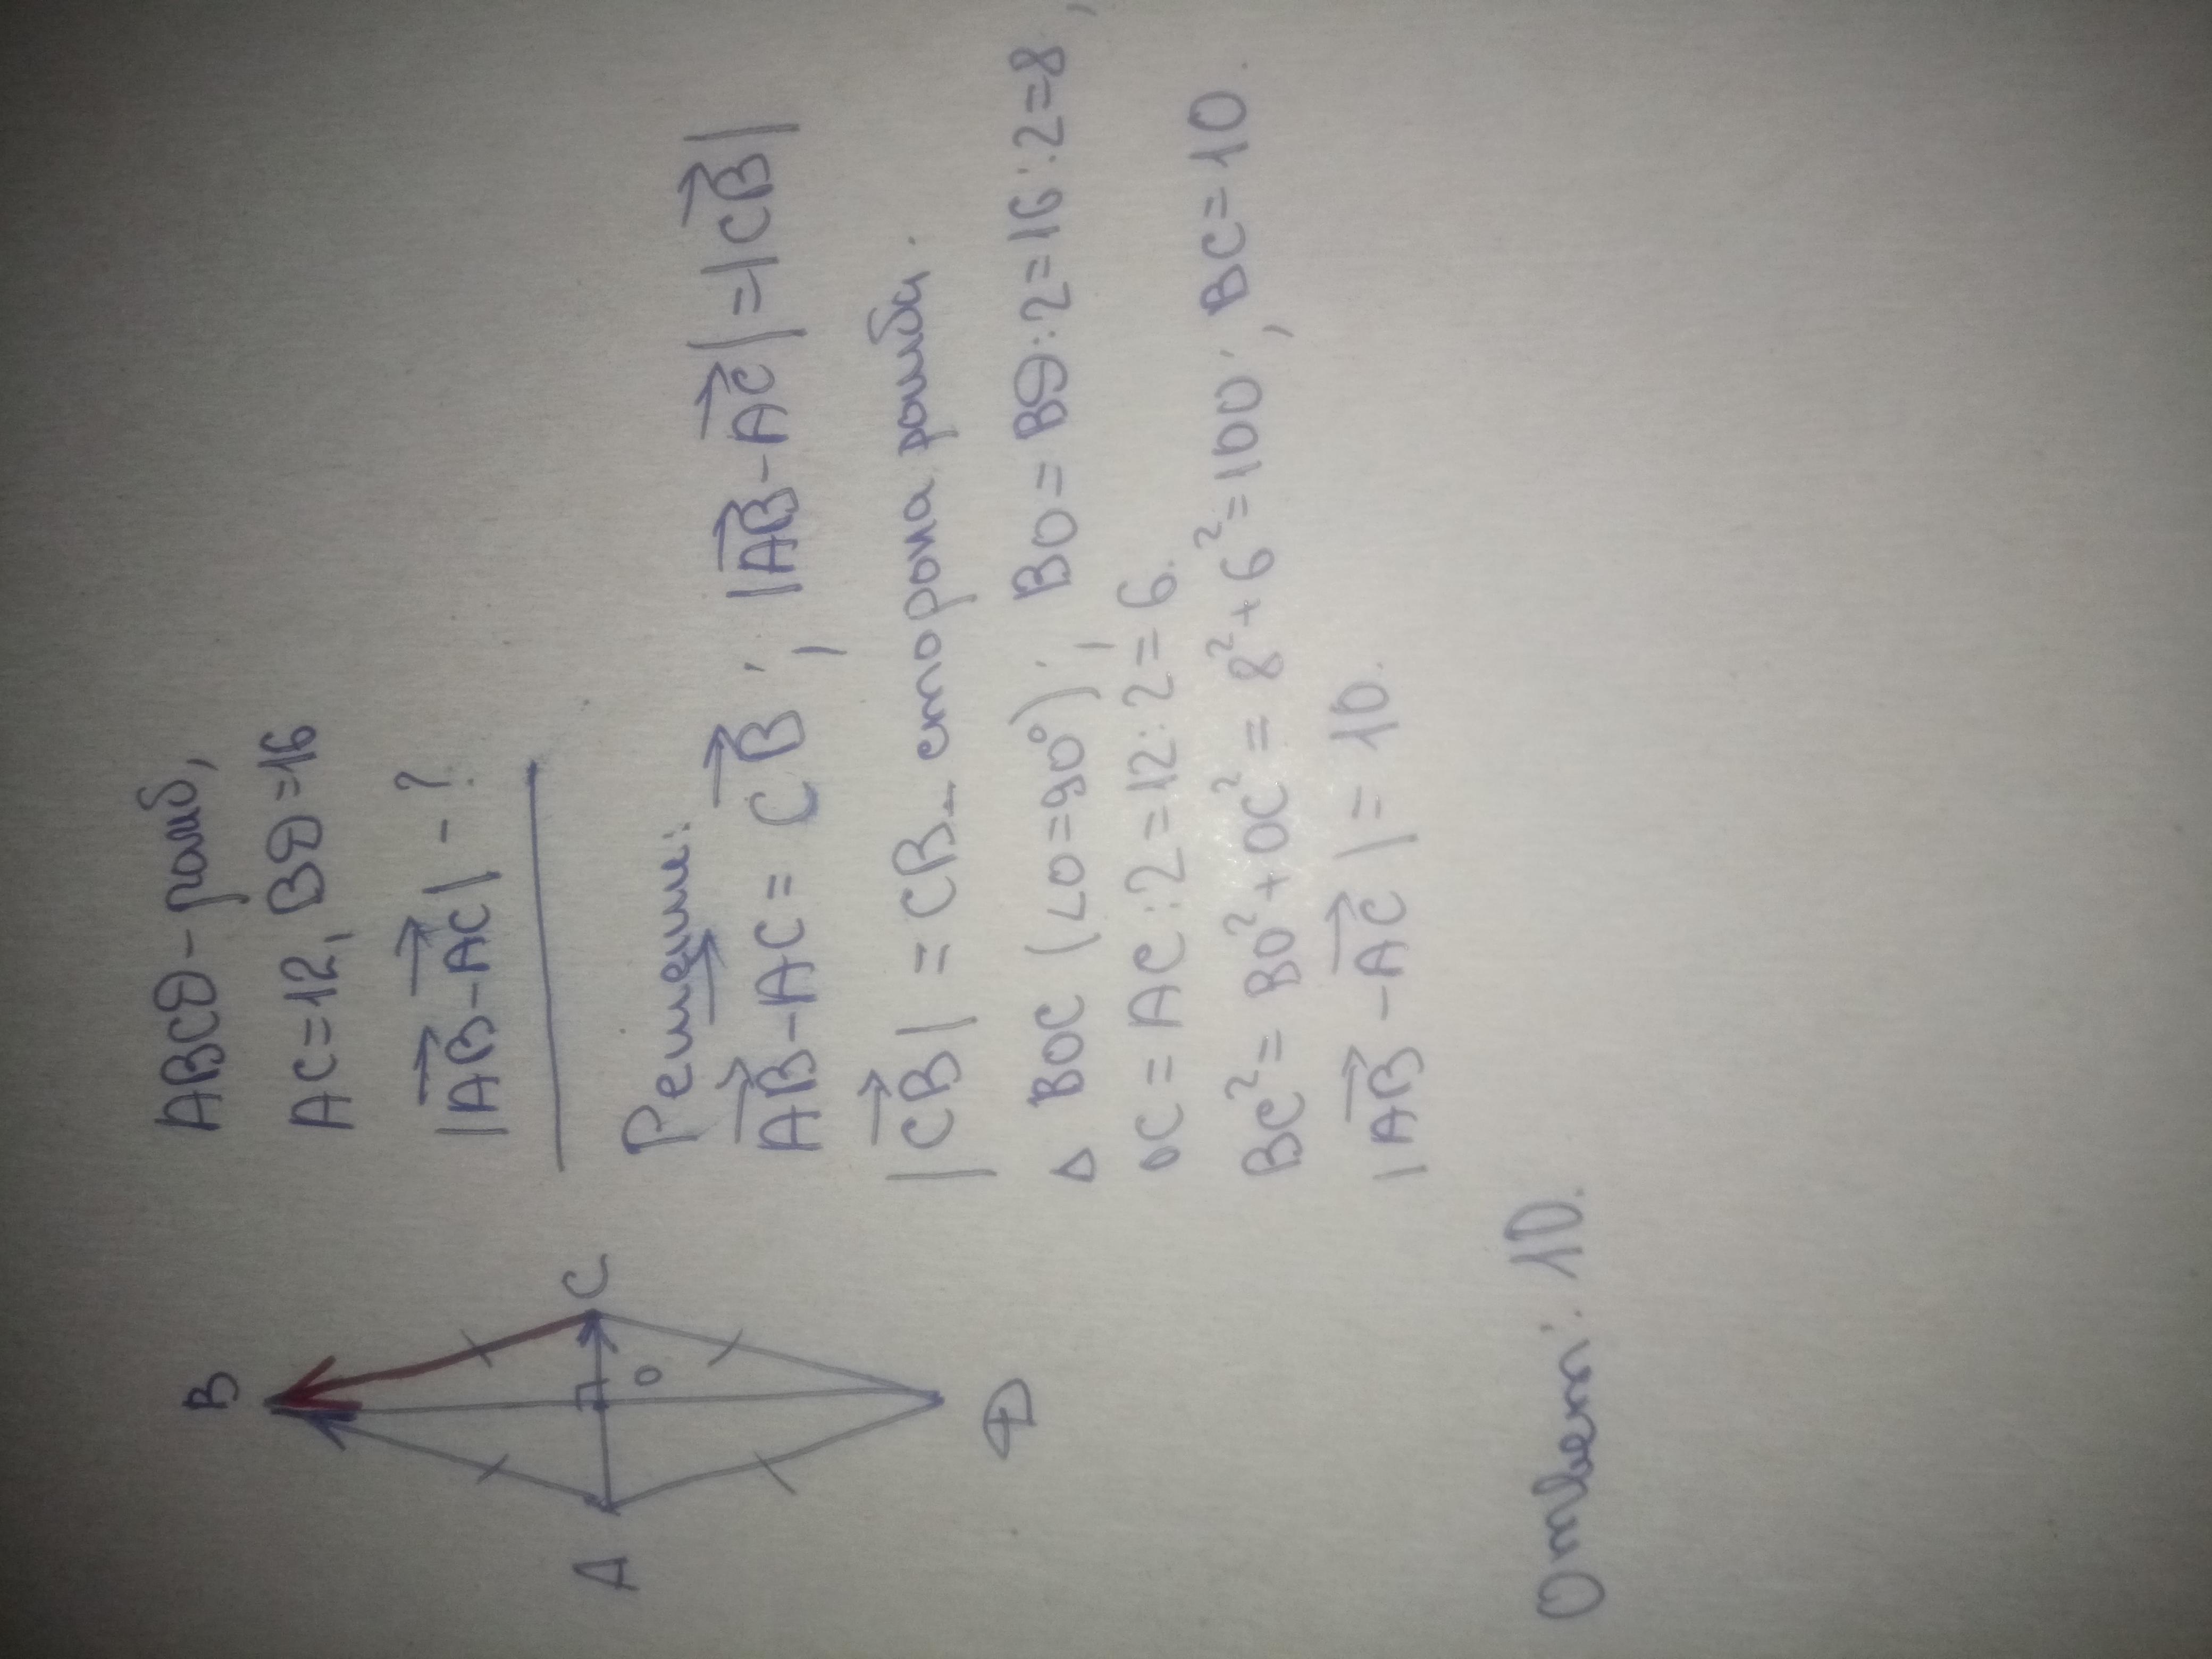 ABCD - ромб,
AC=12, BD=16
|AB→-AC→| - ?
Решение:
AB→-AC→ = CB→; |AB→-AC→|=|CB→|
|CB→| = CB - сторона ромба.
△ BOC (∠O=90°); BO = BD:2=16:2=8,
OC = AC:2=12:2=6.
BC²= BO²+OC² = 8²+6²=100; BC=10.
|AB→-AC→| = 10.
B
A
O
C
D
Ответ: 10.